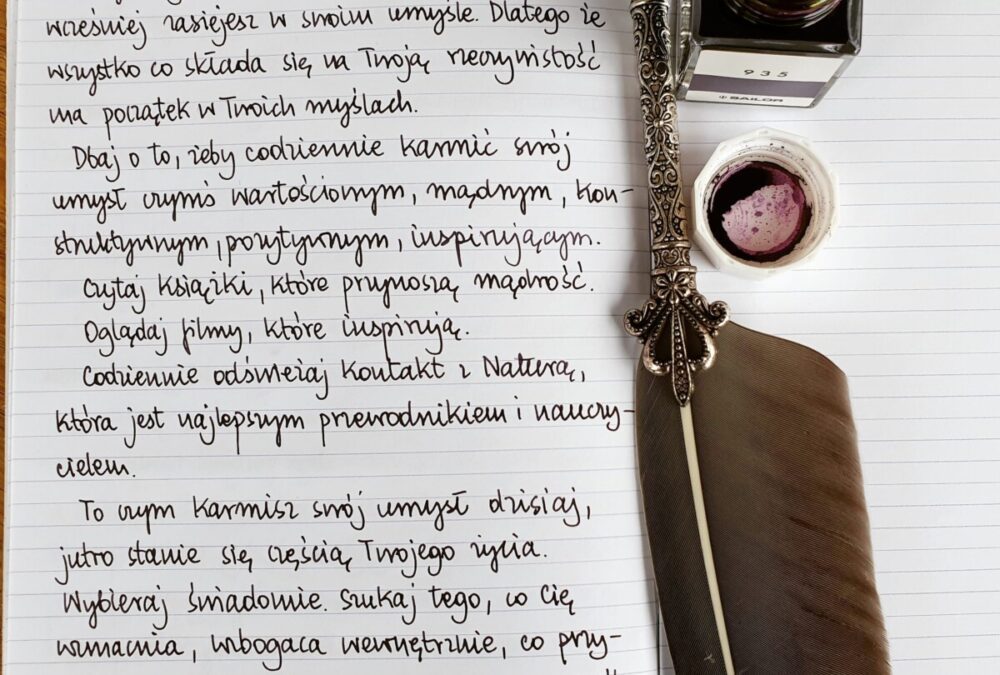 wcześniej zasiejesz w swoim umyśle. Dlatego że
wszystko co składa się na Twoją rzeczywistość
ma początek w Twoich myślach.
Dbaj o to, żeby codziennie karmić swój
umysł czymś wartościowym, mądrym, kon-
struktywnym, pozytywnym, inspirującym.
Czytaj książki, które przynoszą mądrość.
Oglądaj filmy, które inspirują.
Codziennie odświeżaj kontakt z Naturą,
która jest najlepszym przewodnikiem i nauczy-
cielem.
To czym karmisz swój umysł dzisiaj,
jutro stanie się częścią Twojego życia.
Wybieraj świadomie. Szukaj tego, co Cię
wzmacnia, wzbogaca wewnętrznie, co przy-
935
SAILOR